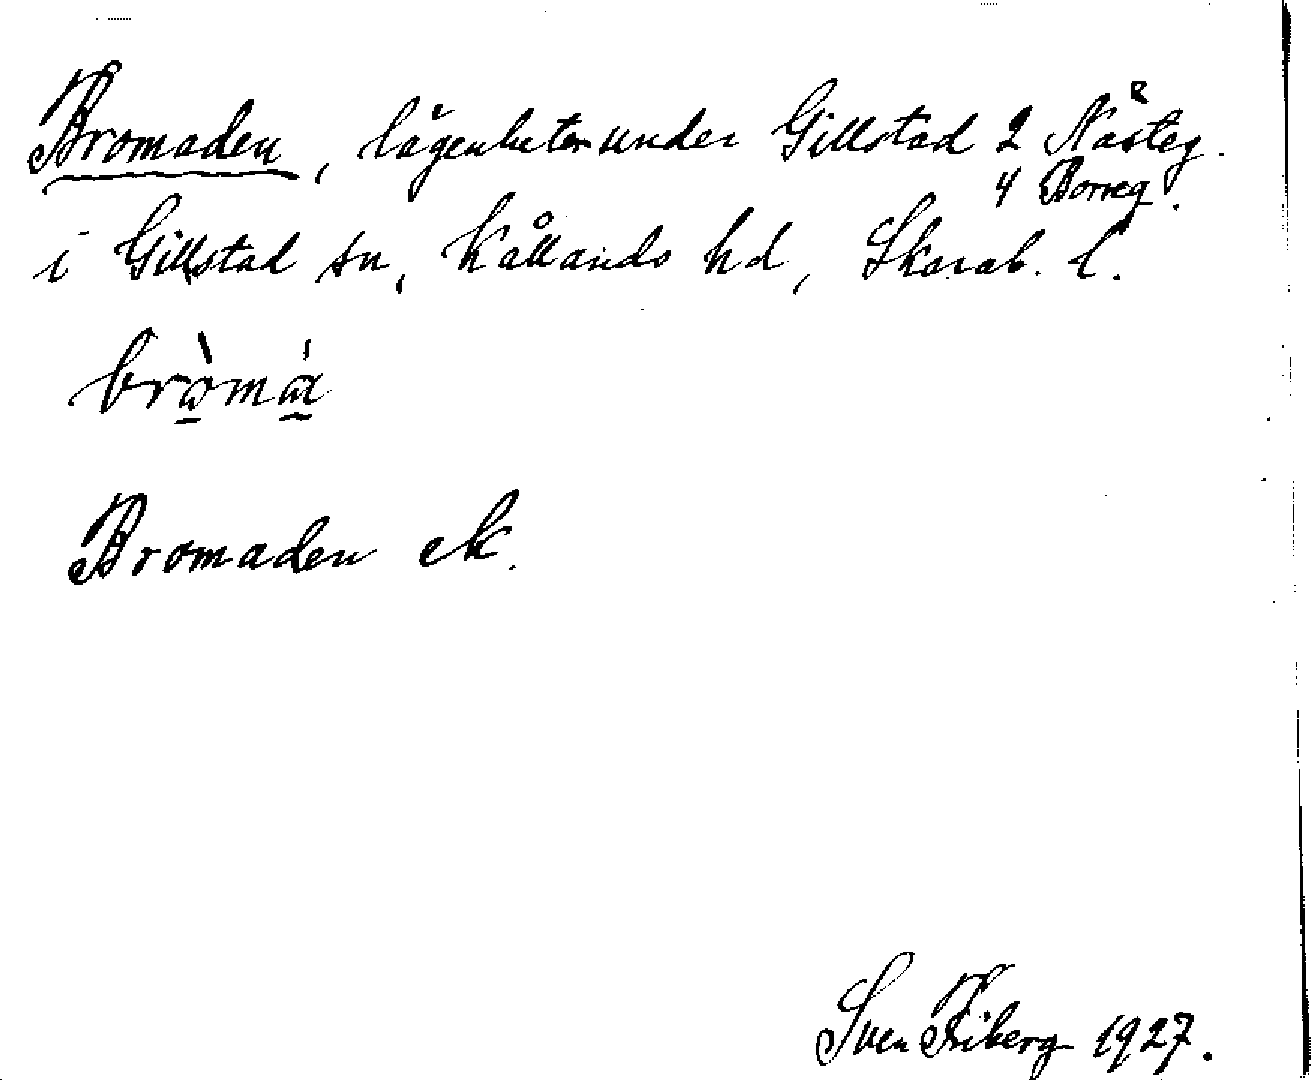 Bromaden, lägenheter under Gillstad 2 Nästeg.
4 Borreg.
i Gillstad sn, Kållands hd, Skarab. l.
Bromaden ek.
Sven Friberg 1927.